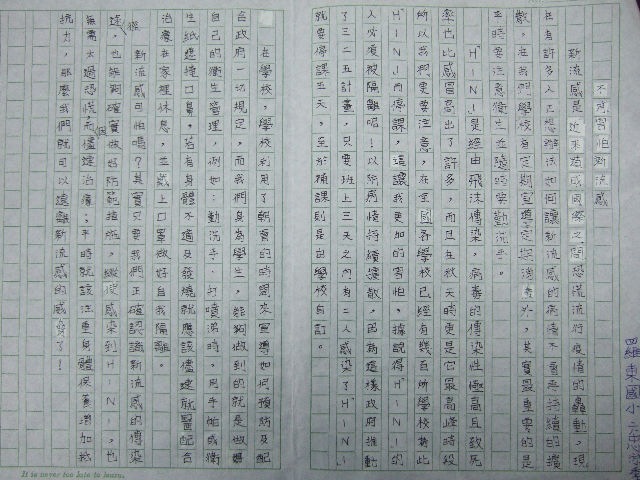 不再害怕新流感
新流感是近來造成國際之間恐慌流行疫情的轟動，現
在有許多人正想辦法如何讓新流感的病情不會再持續的擴
散，在我們學校有定期宣導定期消毒外，其實最重要的是
平時要注意衛生並隨時要勤洗手。
H1N1是經由飛沫傳染，病毒的傳染性極高且致死
率也比感冒高出了許多，而且在秋天時更是它最高峰時段
所以我們更要注意，在全國各學校已經有幾百所學校為此
H1N1而停課，這讓我更加的害怕，據說得H1N1的
人必須被隔離喔！以防疫情持續擴散，因為這樣政府推動
了三二五計畫，只要班上三天之內有二人感染了H1N1
就要停課五天，至於補課則是由學校自訂。
在學校，學校利用了朝會的時間來宣導如何預防及配
合政府一切規定，而我們身為學生，能夠做到的就是做好
自己的衛生管理，例如：勤洗手、打噴涕時，用手帕或衛
生紙遮掩口鼻，若有身體不適及發燒就應該儘速就醫配合
治療在家裡休息，並戴上口罩做好自我隔離。
新流感可怕嗎？其實只要我們正確認識新流感的傳染
途，也能夠確實做好防範措施，縱使感染到H1N1，也
無需太過恐慌，而儘速治療；平時就該注重身體保養增加抵
抗力，那麼我們就可以遠離新流感的威脅了！
羅東國小
It is never too late to learn.